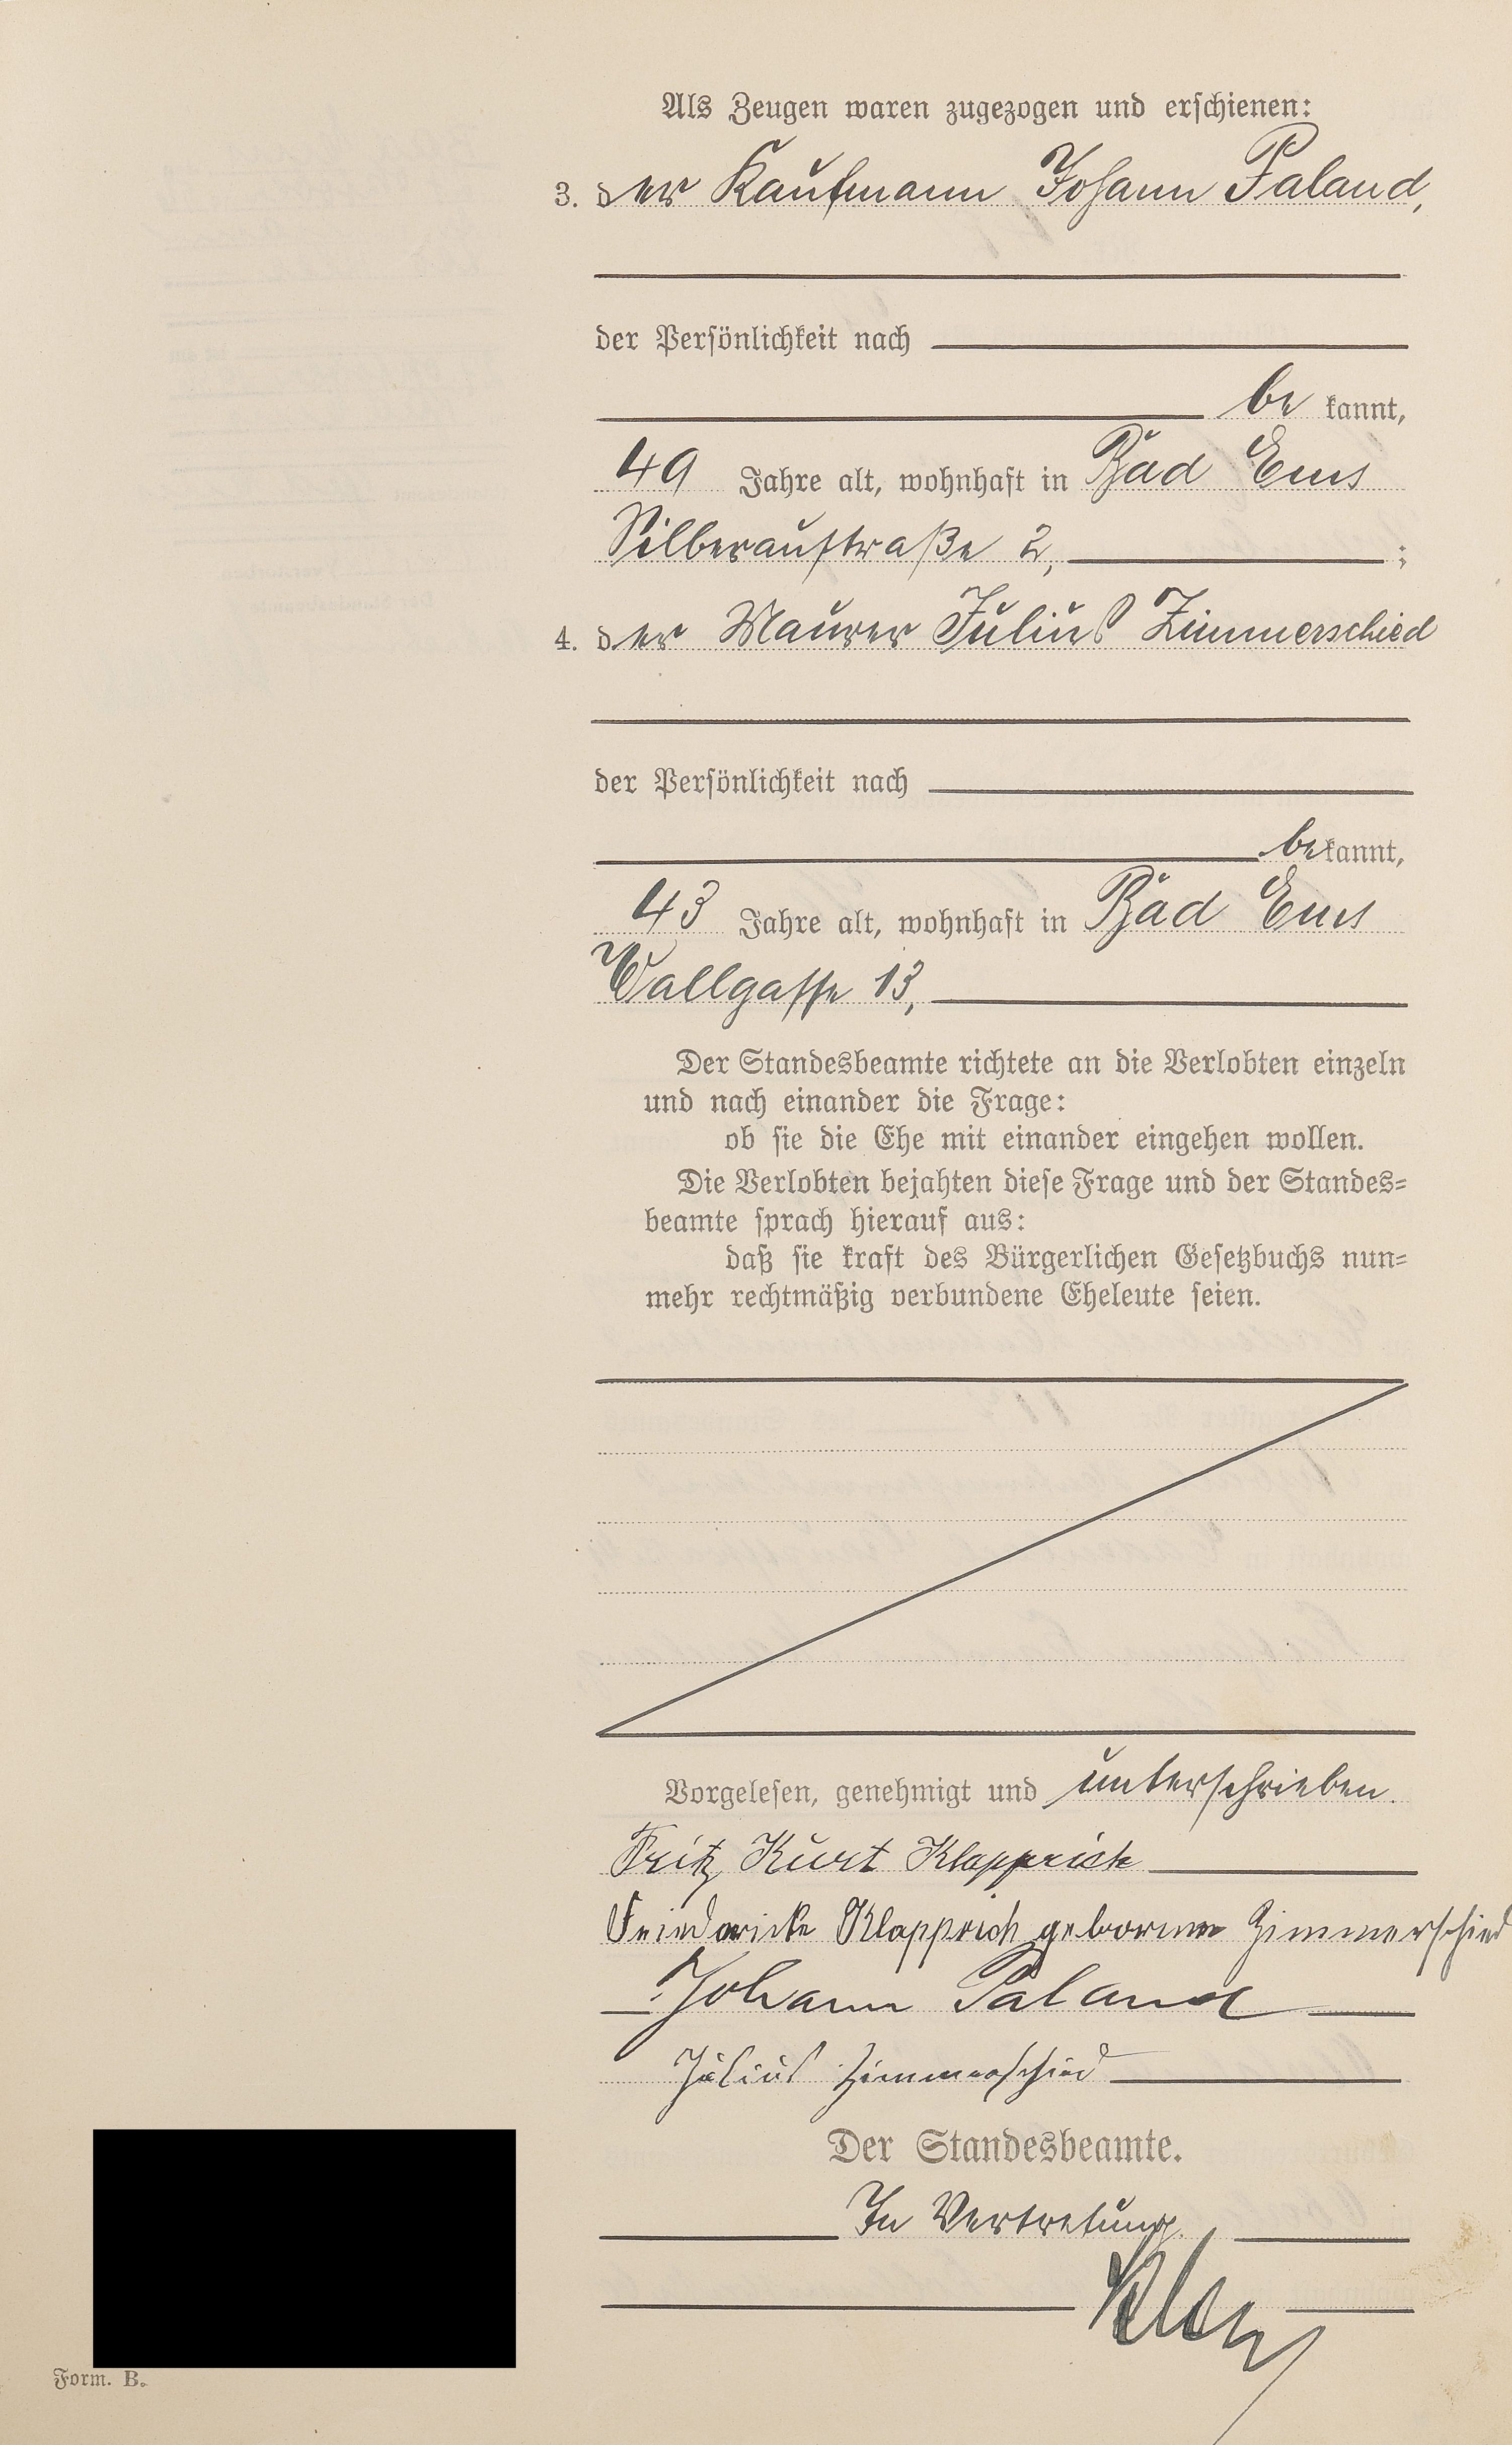 Als Zeugen waren zugezogen und erschienen:
3. der Kaufmann Johann Paland,
der Persönlichkeit nach
bekannt,
49 Jahre alt, wohnhaft in Bad Ems
Silberaustraße 2, ;
4. der Maurer Julius Zimmerschied
der Persönlichkeit nach
bekannt,
43 Jahre alt, wohnhaft in Bad Ems
Wallgasse 13,
Der Standesbeamte richtete an die Verlobten einzeln
und nach einander die Frage:
ob sie die Ehe mit einander eingehen wollen.
Die Verlobten bejahten diese Frage und der Standes=
beamte sprach hierauf aus:
daß sie kraft des Bürgerlichen Gesetzbuchs nun=
mehr rechtmäßig verbundene Eheleute seien.
Vorgelesen, genehmigt und unterschrieben.
Fritz Kurt Klapprich
Friedericke Klapprich geborene Zimmerschied
Johann Paland
Julius Zimmerschied
Der Standesbeamte.
In Vertretung.
Form. B.